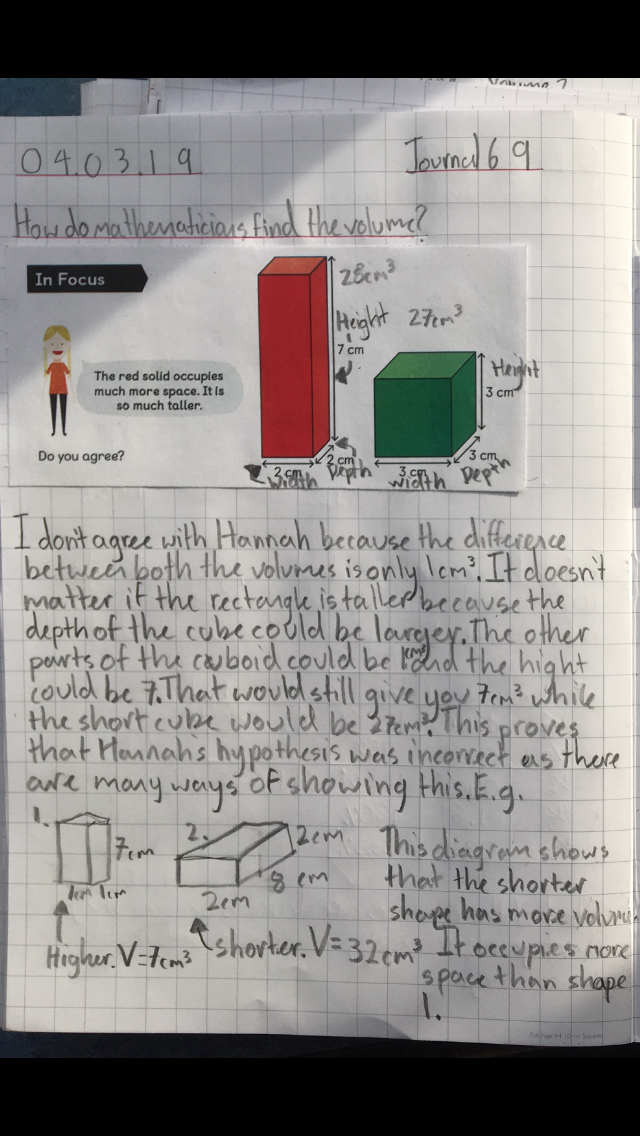 Volume?
04.03.19 Journal 69
How do mathematicians find the volume?
In Focus
The red solid occupies
much more space. It is
so much taller.
Do you agree?
28cm³
Height
7 cm
2 cm
Width
2 cm
Depth
27cm³
Height
3 cm
3 cm
Width
3 cm
Depth
I don't agree with Hannah because the difference
between both the volumes is only 1cm³. It doesn't
matter if the rectangle is taller because the
depth of the cube could be larger. The other
parts of the cuboid could be 1cm³ and the hight
could be 7. That would still give you 7cm³ while
the short cube would be 27cm³. This proves
that Hannah's hypothesis was incorrect as there
are many ways of showing this. E.g.
1.
7cm
1cm 1cm
Higher. V=7cm³
2.
2cm
8 cm
2cm
shorter. V=32cm³
This diagram shows
that the shorter
shape has more volume
It occupies more
space than shape
1.